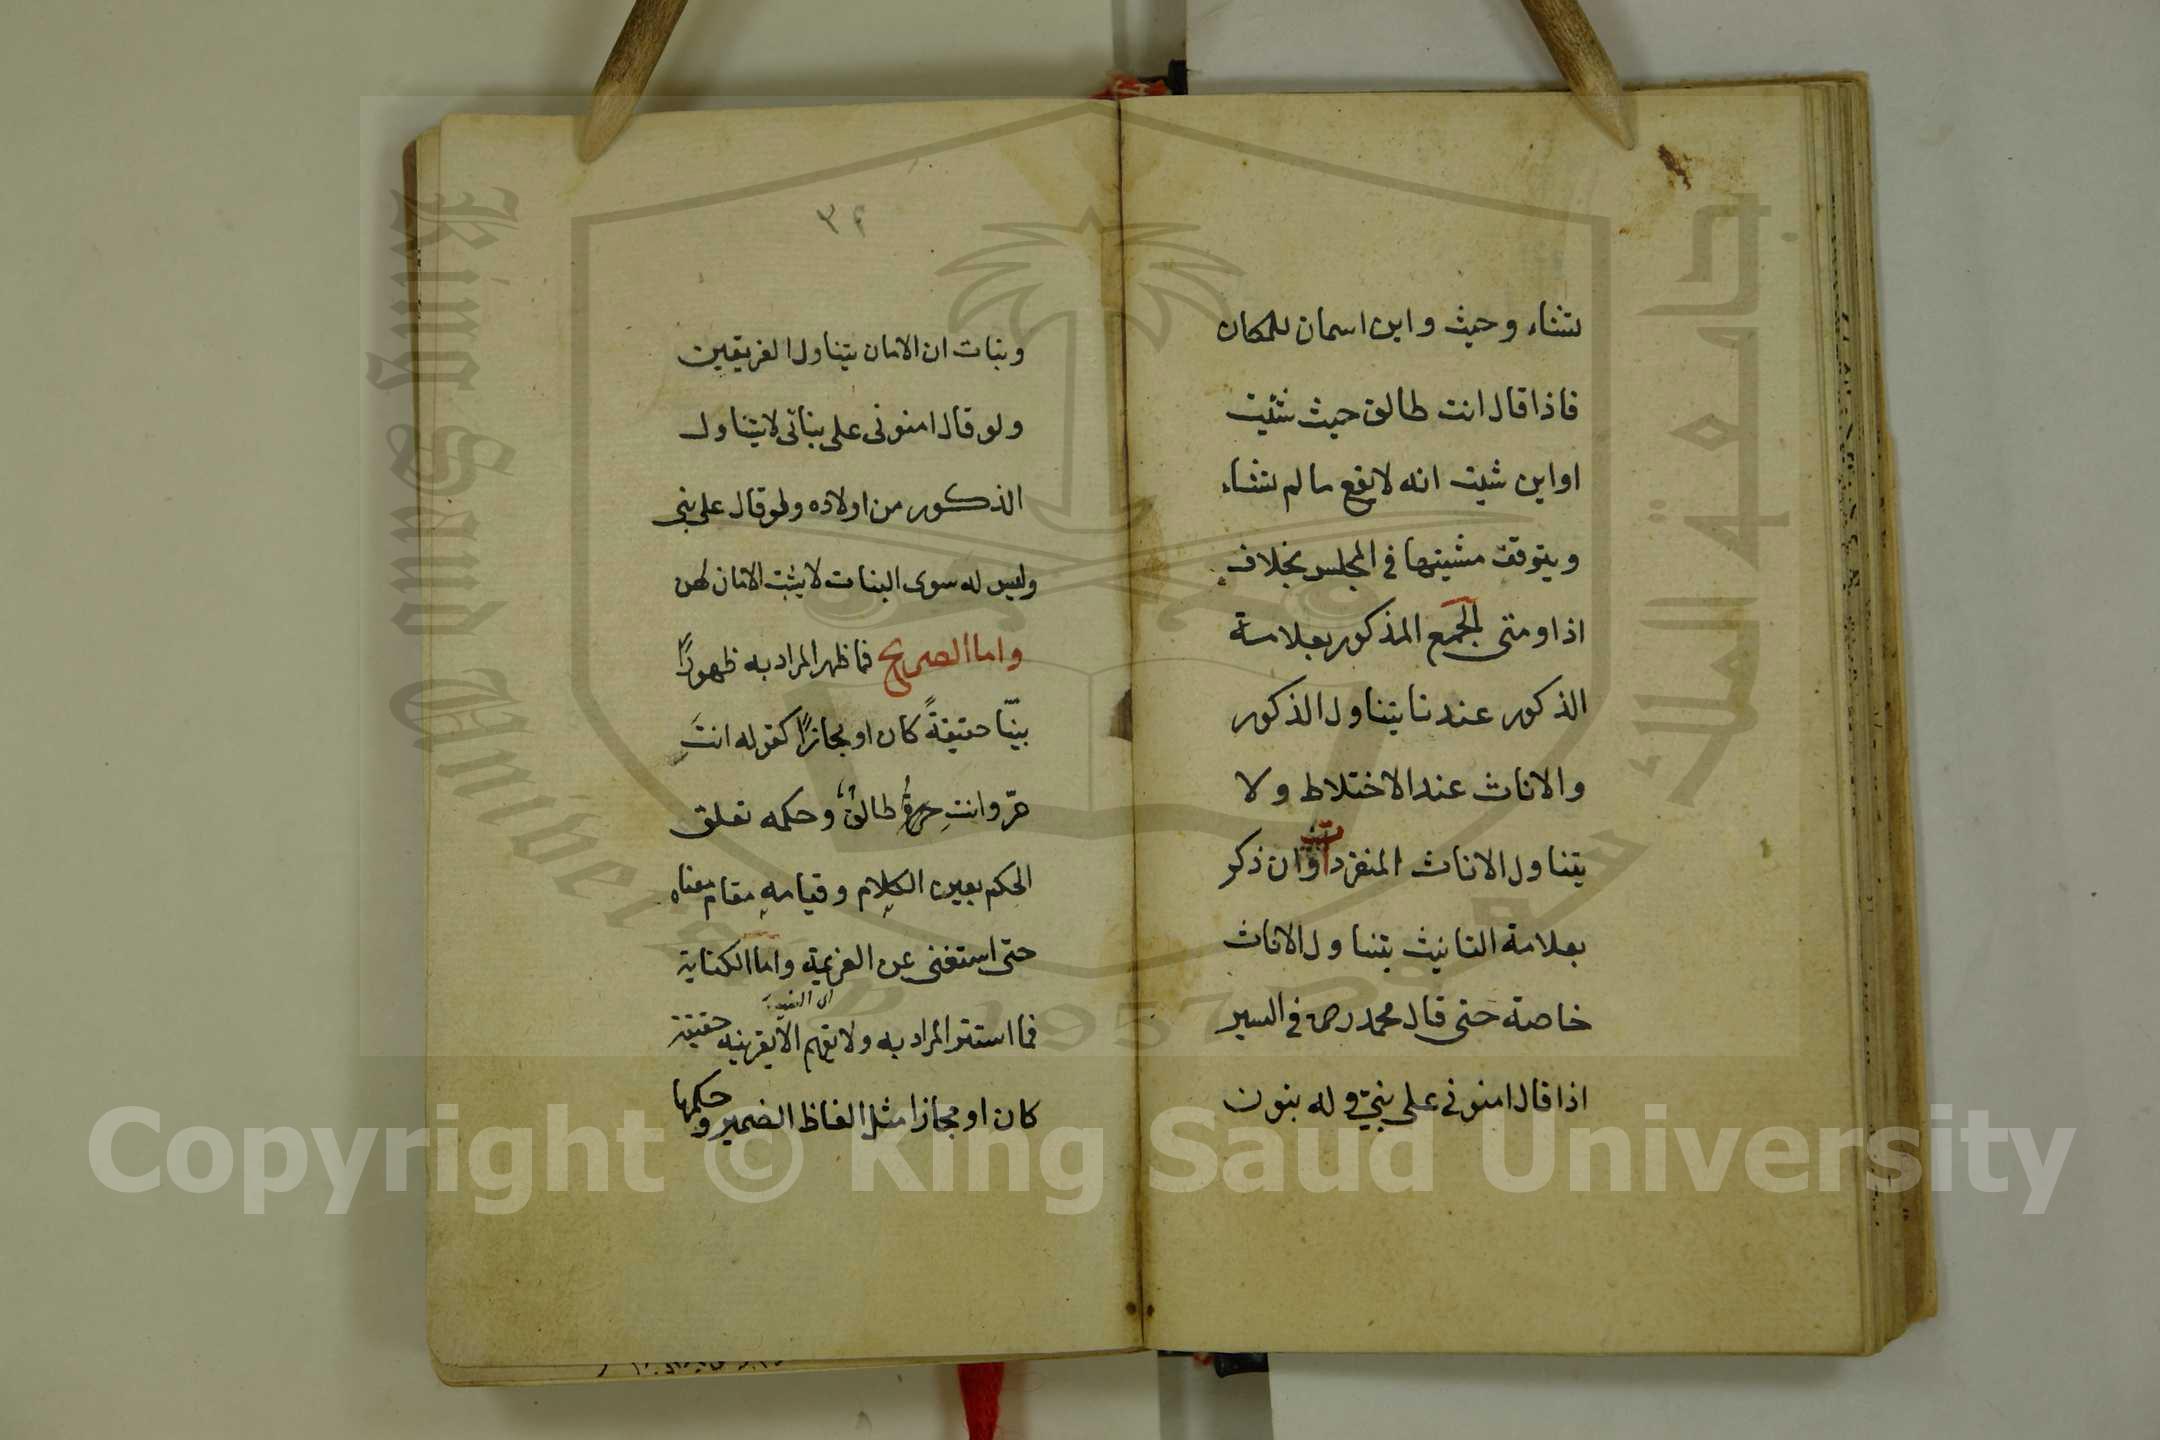 تشاء وحيث واين اسمان للمكان
فاذا قال انت طالق حيث شئت
او اين شئت انه لا يقع ما لم تشاء
ويتوقف مشيتها في المجلس بخلاف
اذا ومتى الجمع المذكور بعلامة
الذكور عندنا يتناول الذكور
والاناث عند الاختلاط ولا
يتناول الاناث المنفردات وان ذكر
بعلامة التانيث يتناول الاناث
خاصة حتى قال محمد رحمه في السير
اذا قال امنوني على بنيّ وله بنون
٣٢
وبنات ان الامان يتناول الفريقين
ولو قال امنوني على بناتي لا يتناول
الذكور من اولاده ولو قال على بني
وليس له سوى البنات لا يثبت الامان لهن
واما الصريح فما ظهر المراد به ظهورًا
بيّنا حقيقةً كان او مجازًا كقوله انت
حرّ وانتِ حرةٌ طالقٌ وحكمه تعلق
الحكم بعين الكلام وقيامه مقام معناه
حتى استغنى عن العزيمة واما الكناية
فما استتر المراد به ولا يفهم الا بقرينه حقيقة
كان او مجازا مثل الفاظ الضمير وحكمها
Copyright © King Saud University
King Saud University
جامعة الملك سعود
1957